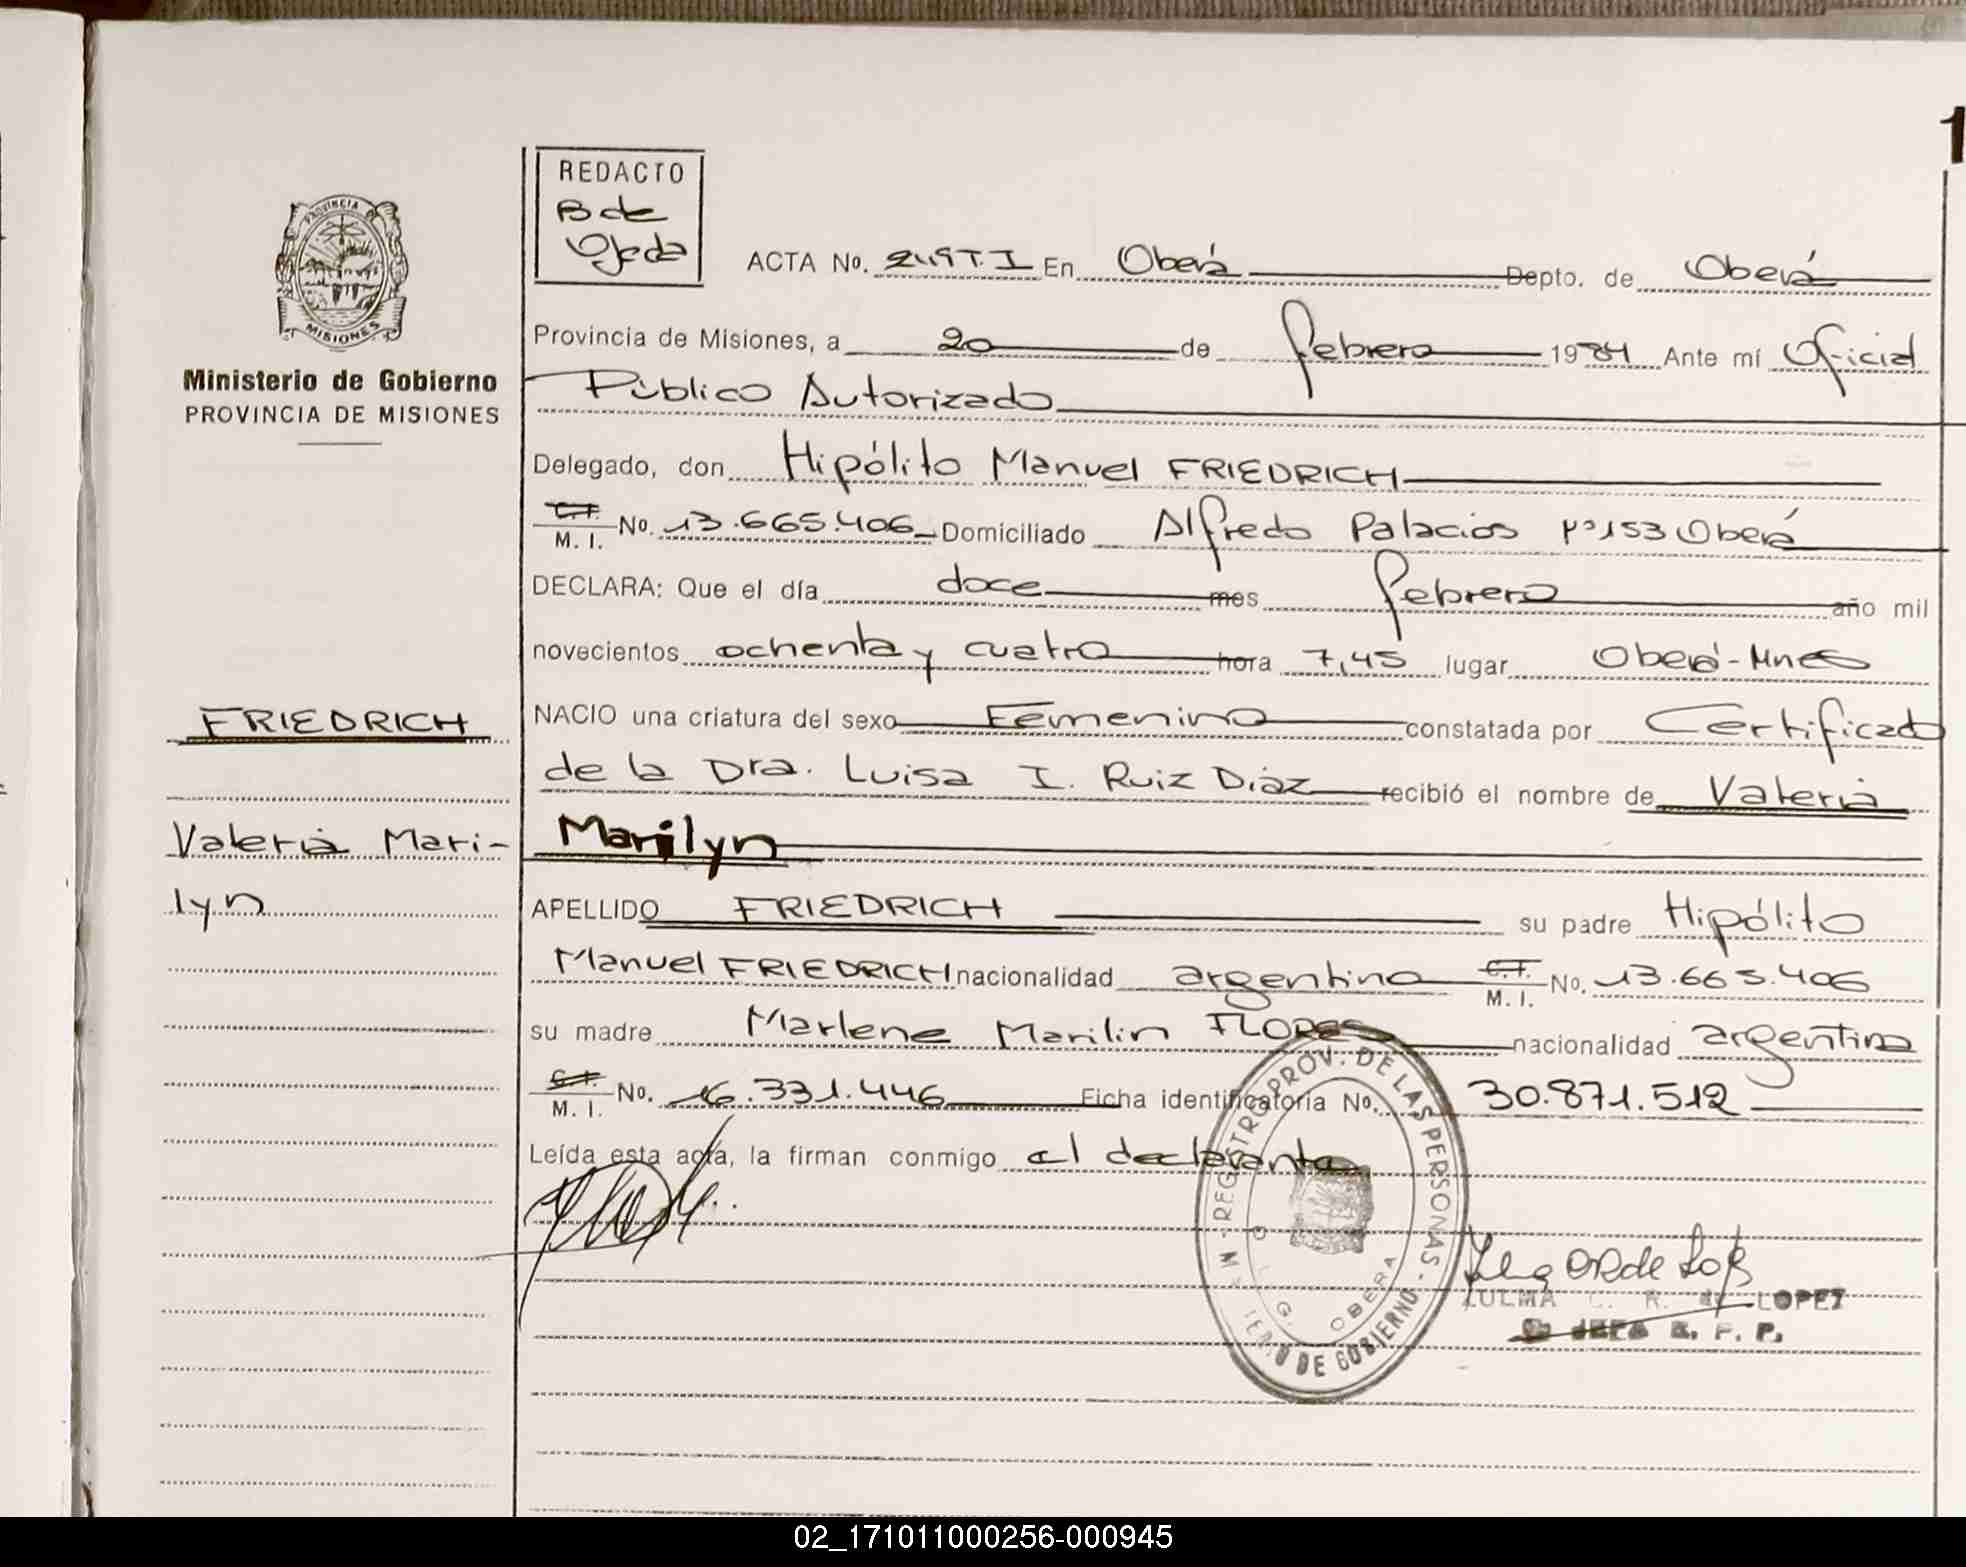 1
REDACTO
B de
Ojeda
PROVINCIA DE
MISIONES
Ministerio de Gobierno
PROVINCIA DE MISIONES
ACTA No. 249 T.I En Oberá Depto. de Oberá
Provincia de Misiones, a 20 de febrero 1984 Ante mí Oficial
Público Autorizado
Delegado, don Hipólito Manuel FRIEDRICH
C.I. M. I. No. 13.665.406 Domiciliado Alfredo Palacios Nº 153 Oberá
DECLARA: Que el día doce mes febrero año mil
novecientos ochenta y cuatro hora 7,45 lugar Oberá-Mnes
FRIEDRICH
NACIO una criatura del sexo Femenino constatada por Certificado
de la Dra. Luisa I. Ruiz Díaz recibió el nombre de Valeria
Valeria Mari-
lyn
Marilyn
APELLIDO FRIEDRICH su padre Hipólito
Manuel FRIEDRICH nacionalidad argentino C.I. M. I. No. 13.665.406
su madre Marlene Marilin FLORES nacionalidad argentina
C.I. M. I. No. 16.331.446 Ficha identificatoria No. 30.871.512
Leída esta acta, la firman conmigo el declarante
REGISTRO PROV. DE LAS PERSONAS - DE GOBIERNO
OBERA
ZULMA C. R. de LOPEZ
JEFA R. P. P.
02_171011000256-000945